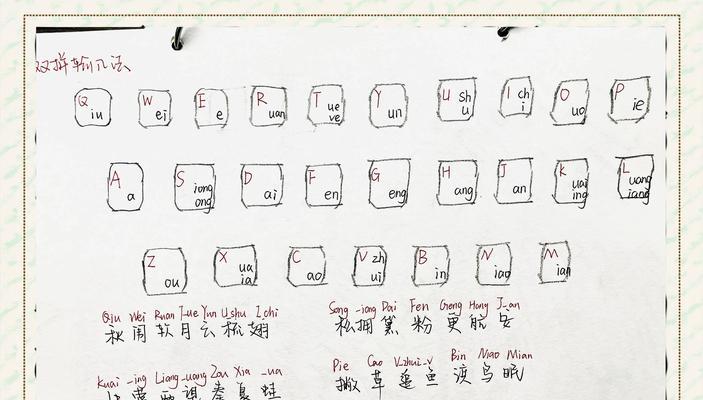 双拼输入法
Q iu W ei E e R uan T ue ve Y un U sh u I ch i O uo P ie
A a S iong ong D ai F en G eng H ang J an K uai ing L uang iang
Z ou X ua ia C ao V zh ui B in N iao M ian
Qiu Wei Ruan T-ue Yun U_shu I_chi Song -iong Dai Fen Geng Hang J-an
秋闱软月云梳翅 松拥黛粉更航安
Kuai -ing Liang -uang Zou Xia -ua Pie Cao V_zhui_v Bin Niao Mian
撇草追鱼滨鸟眠